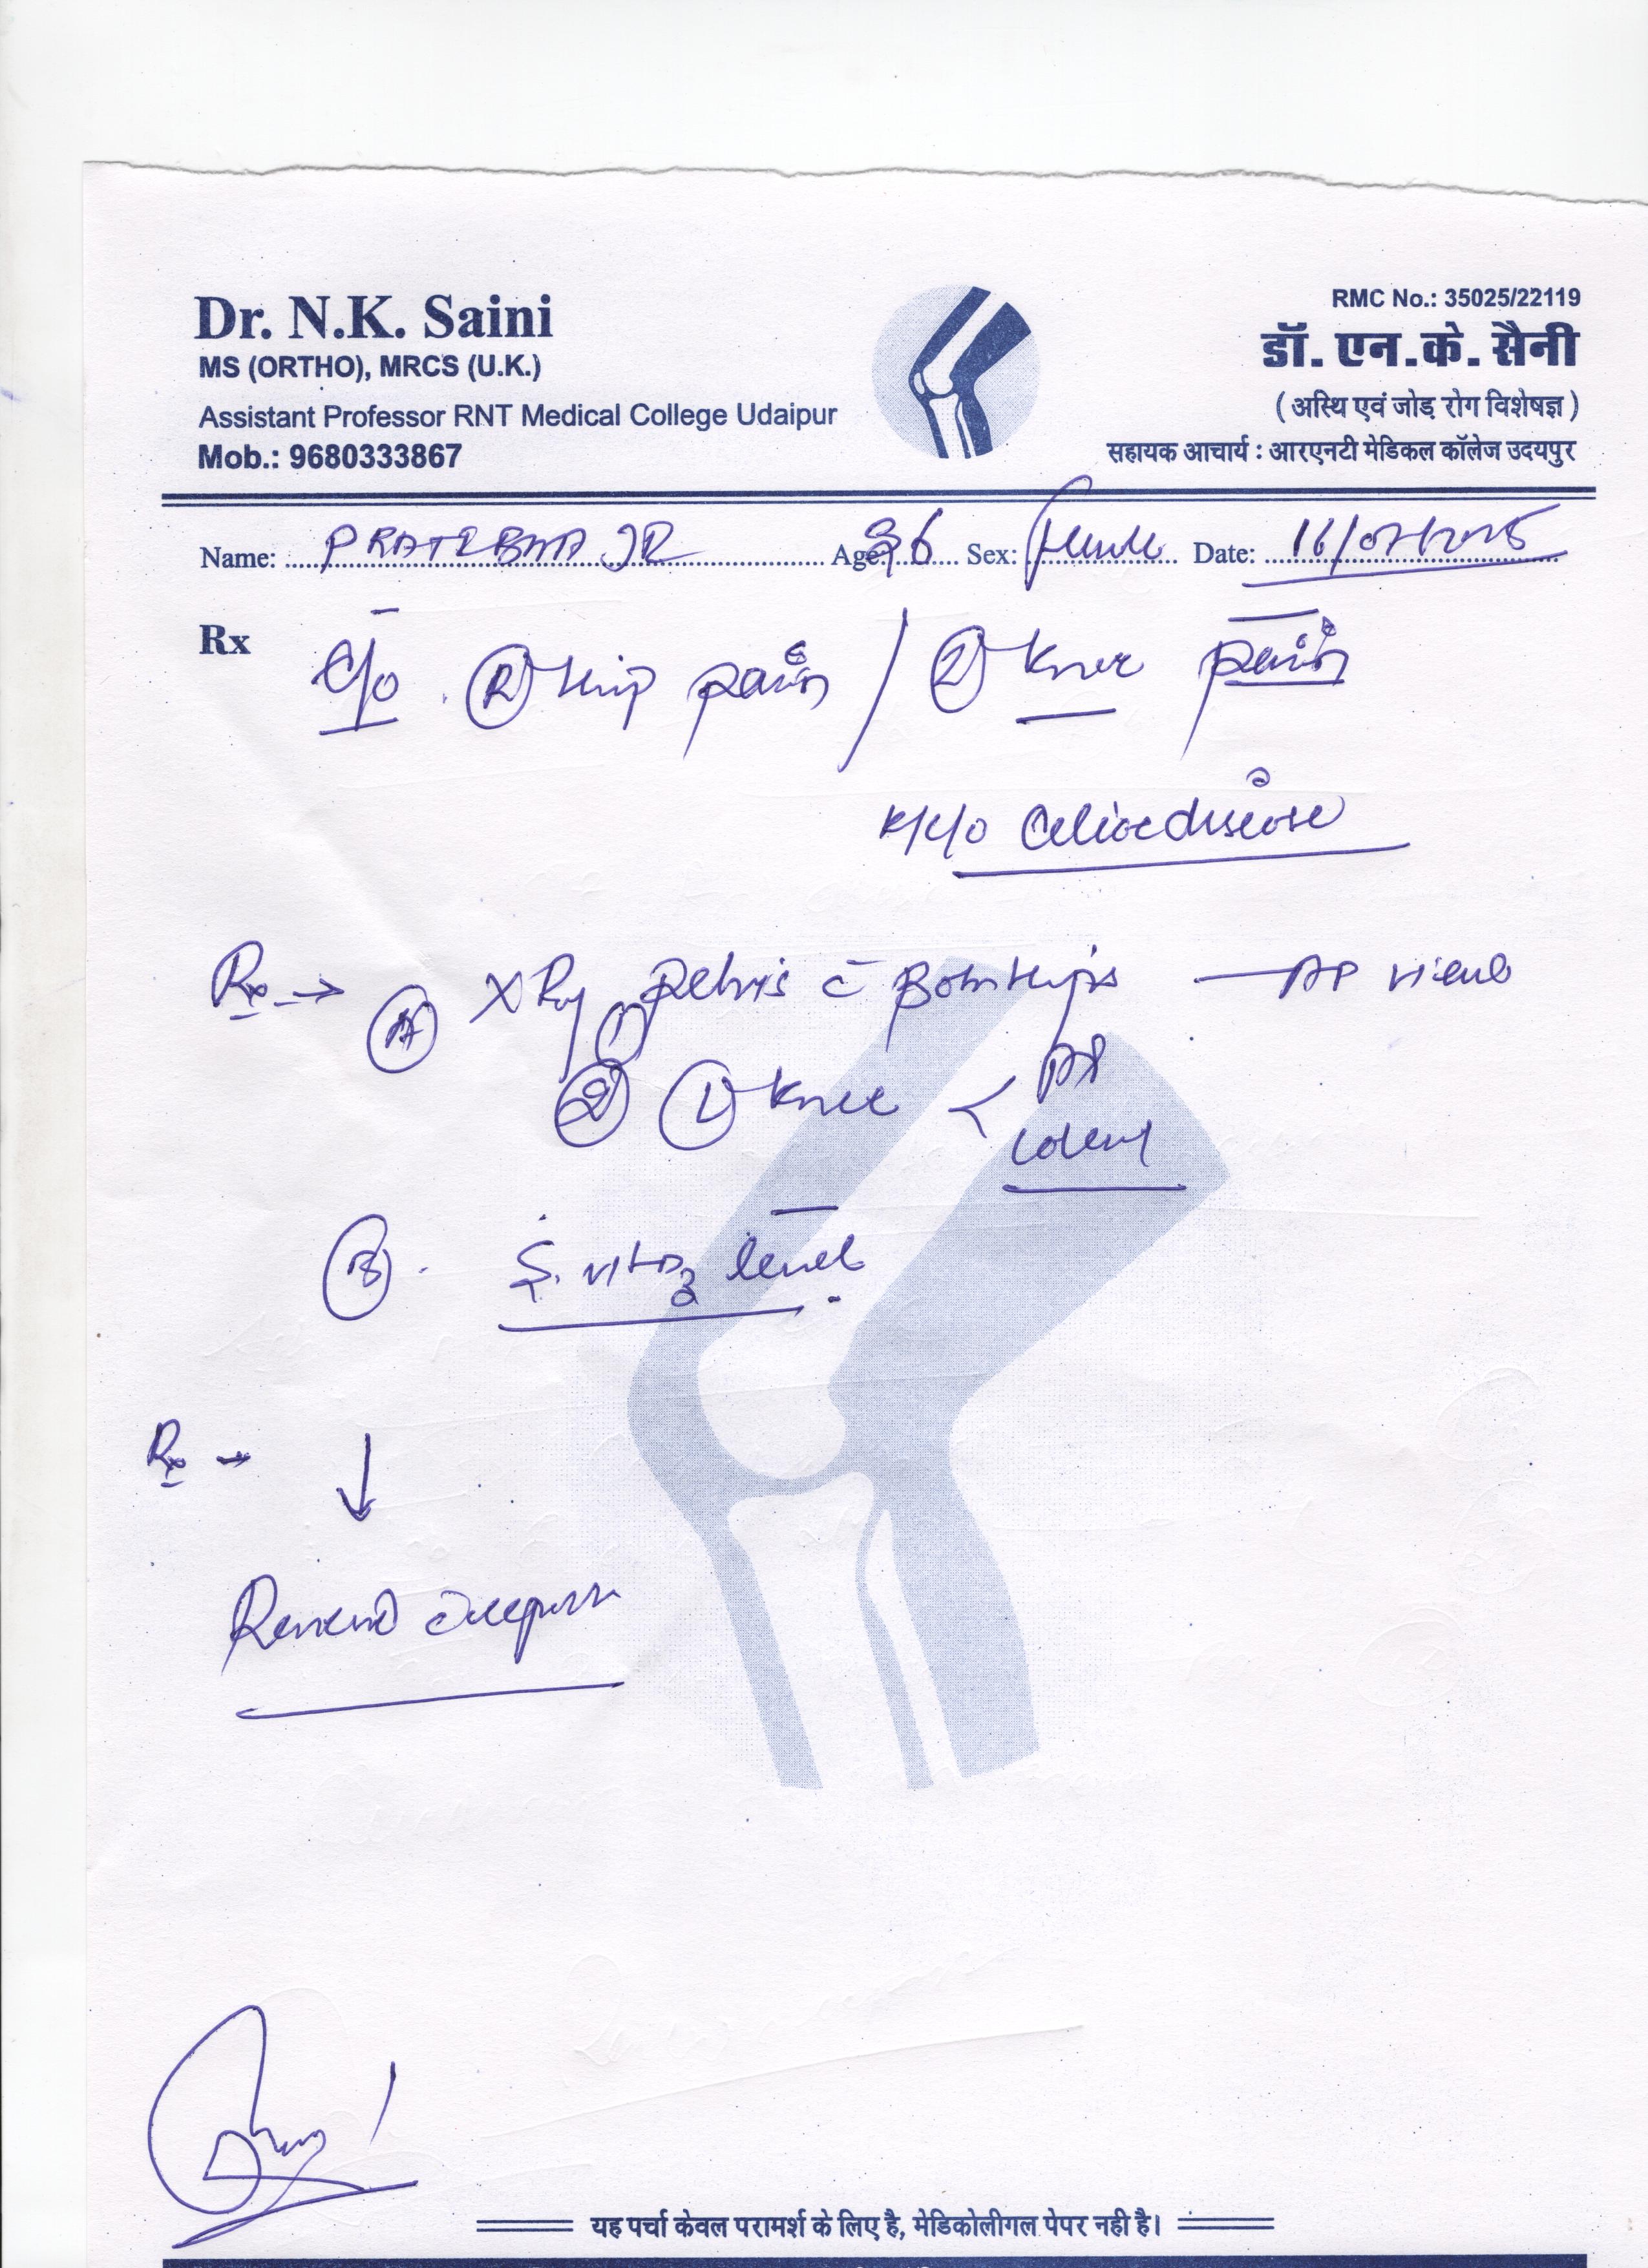 Dr. N.K. Saini
MS (ORTHO), MRCS (U.K.)
Assistant Professor RNT Medical College Udaipur
Mob.: 9680333867
RMC No.: 35025/22119
डॉ. एन.के. सैनी
(अस्थि एवं जोड़ रोग विशेषज्ञ)
सहायक आचार्य : आरएनटी मेडिकल कॉलेज उदयपुर
Name: Age: 36 Sex: Female Date:
Rx C/o (R) Hip pain / knee pain
K/C/O Celiac disease
Rx → (A) X Ray (1) Pelvis c̄ Both Hips — AP view
(2) (L) knee < AP
Lateral
(B). S. vit D3 level
Rx → ↓
Review c
यह पर्चा केवल परामर्श के लिए है, मेडिकोलीगल पेपर नही है।